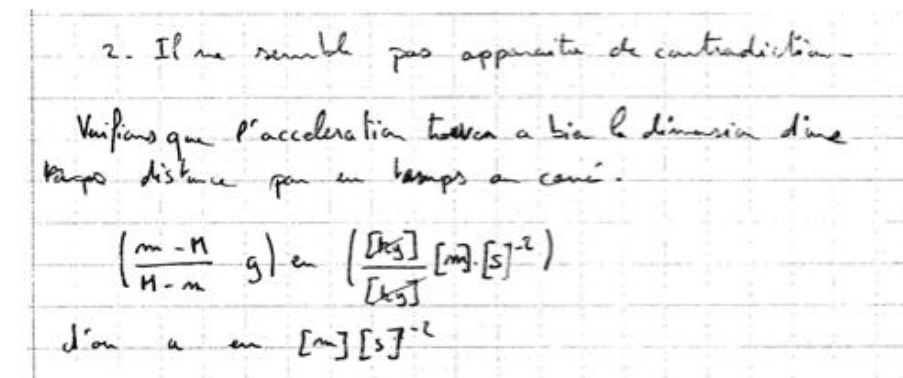 2. Il ne semble pas apparaitre de contradiction.
Verifions que l'acceleration trouvee a bien la dimension d'une
temps distance par un temps au carré.
(\frac{m - M}{M - m} g) en (\frac{[kg]}{[kg]} [m].[s]^{-2})
d'où a en [m][s]^{-2}